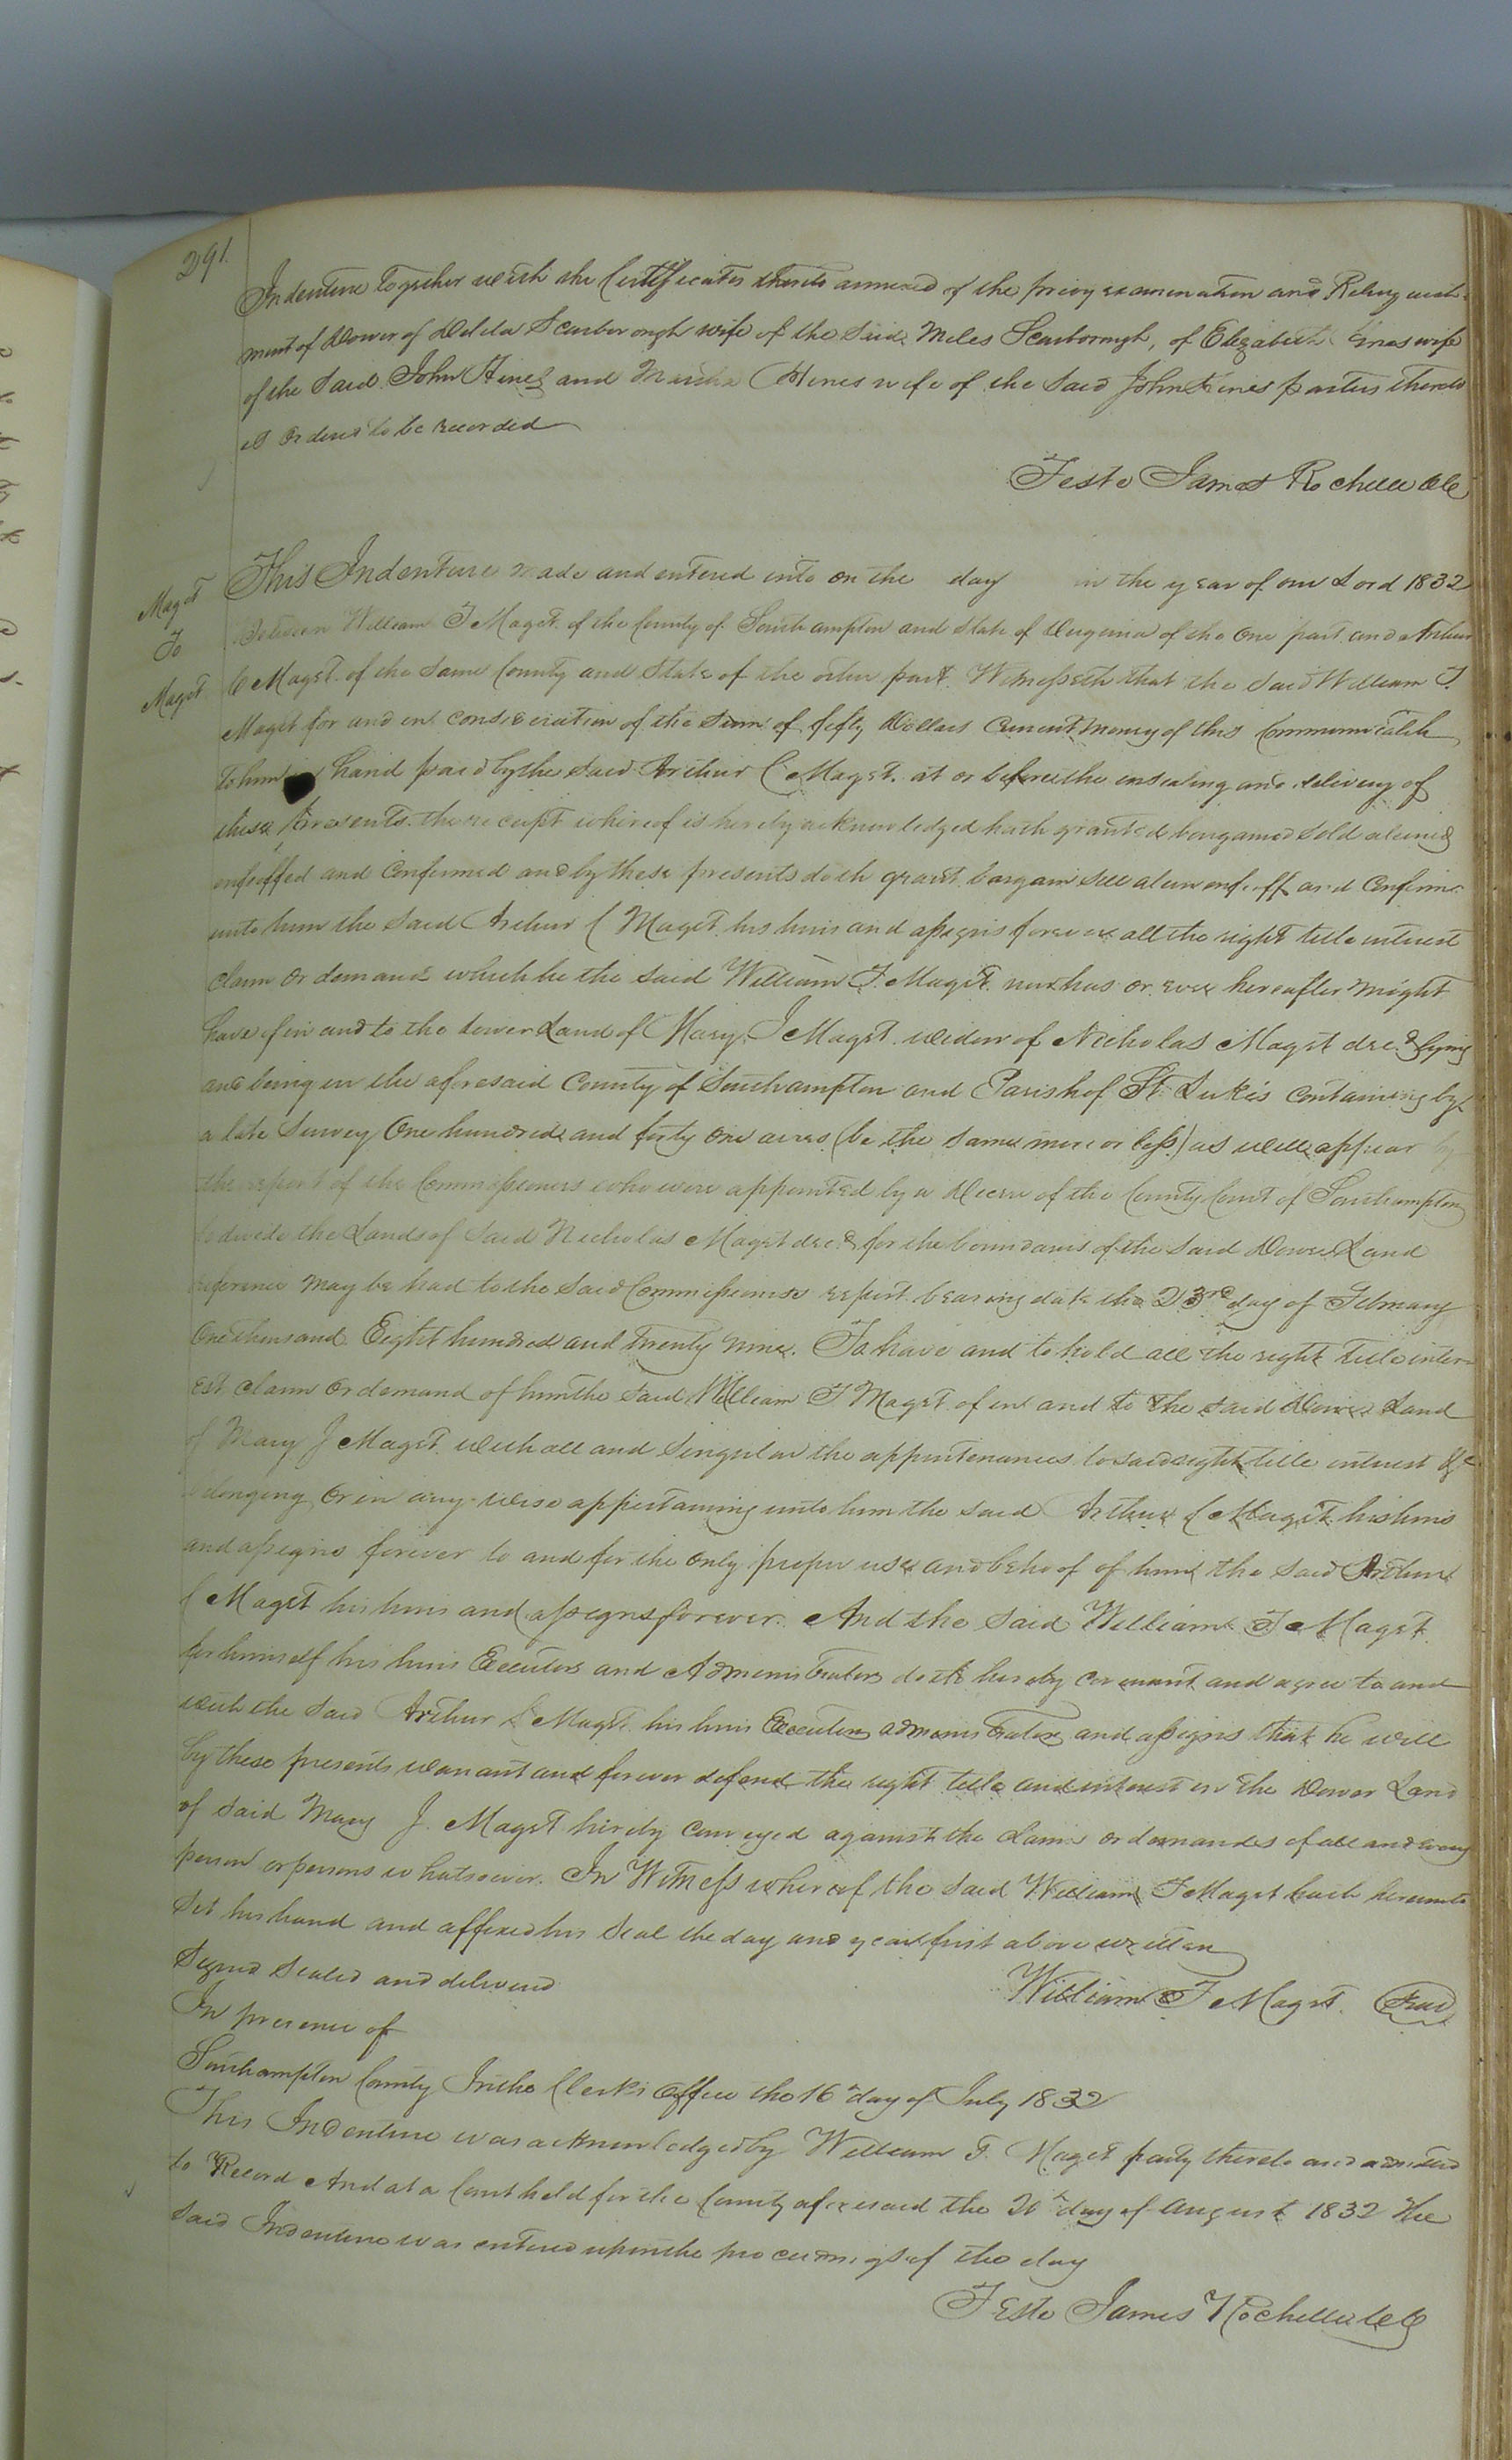 291.
Indenture together with the Certificates thereto annexed of the privy examination and Relinquish-
ment of Dower of Delila Scarborough wife of the said Miles Scarborough, of Elizabeth wife
of the said John Hines and Hines wife of the said John Hines parties thereto
is Ordered to be recorded
Teste James Rochelle Clk
Maget
To
Maget
This Indenture made and entered into on the day in the year of our Lord 1832
Between William T Maget of the County of Southampton and State of Virginia of the one part and Arthur
C Maget of the same County and State of the other part Witnesseth that the said William T.
Maget for and in consideration of the sum of fifty Dollars Current money of this Commonwealth
to him in hand paid by the said Arthur C Maget. at or before the ensealing and delivery of
these presents the receipt whereof is hereby acknowledged hath granted bargained sold aliened
enfeoffed and confirmed and by these presents doth grant bargain sell alien enfeoff and confirm
unto him the said Arthur C Maget his heirs and assigns forever all the right title interest
claim or demand which he the said William T. Maget now has or ever hereafter might
have of in and to the dower Land of Mary J Maget widow of Nicholas Maget decd lying
and being in the aforesaid County of Southampton and Parish of St. Luke's containing by
a late survey One hundred and forty one acres (be the same more or less) as will appear by
the report of the Commissioners who were appointed by a Decree of the County Court of Southampton
to divide the Lands of said Nicholas Maget decd for the boundaries of the said Dower Land
reference may be had to the said Commissioners report bearing date the 23rd day of February
One thousand Eight hundred and twenty nine. To have and to hold all the right title inter-
est claim or demand of him the said William T Maget of in and to the said Dower Land
of Mary J Maget with all and singular the appurtenances to said right title interest &c
belonging or in any wise appertaining unto him the said Arthur C Maget his heirs
and assigns forever to and for the only proper use and behoof of him the said Arthur
C Maget his heirs and assigns forever. And the said William T Maget
for himself his heirs Executors and Administrators doth hereby covenant and agree to and
with the said Arthur C Maget his heirs Executors administrators and assigns that he will
by these presents warrant and forever defend the right title and interest in the Dower Land
of said Mary J. Maget hereby conveyed against the claims or demands of all and every
person or persons whatsoever. In Witness whereof the said William T Maget hath hereunto
set his hand and affixed his seal the day and year first above written
Signed Sealed and delivered
William T Maget. Seal
In presence of
Southampton County In the Clerks Office the 16th day of July 1832
This Indenture was acknowledged by William T. Maget party thereto and admitted
to Record And at a Court held for the County aforesaid the 20th day of August 1832 The
said Indenture was entered upon the proceedings of the day
Teste James Rochelle Clk